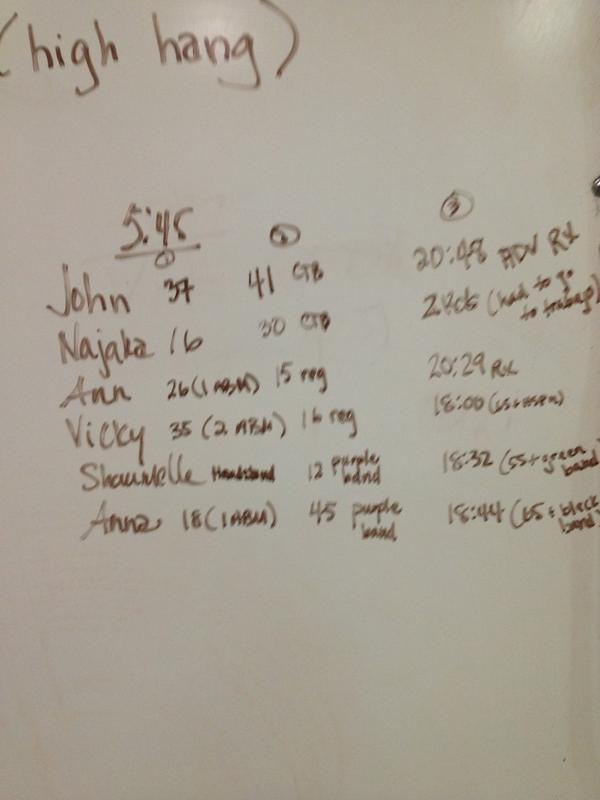 (high hang)
5:45
① ② ③
John 37 41 CTB 20:48 ADV RX
Najaka 16 30 CTB 2 Rds (had to go to trabajo)
Ann 26 (1 ABM) 15 reg 20:29 RX
Vicky 35 (2 ABM) 16 reg 18:00
Shaunelle Handstand 12 purple band 18:32 (55 + green band)
Anna 18 (1 ABM) 45 purple band 18:44 (65 + black band)